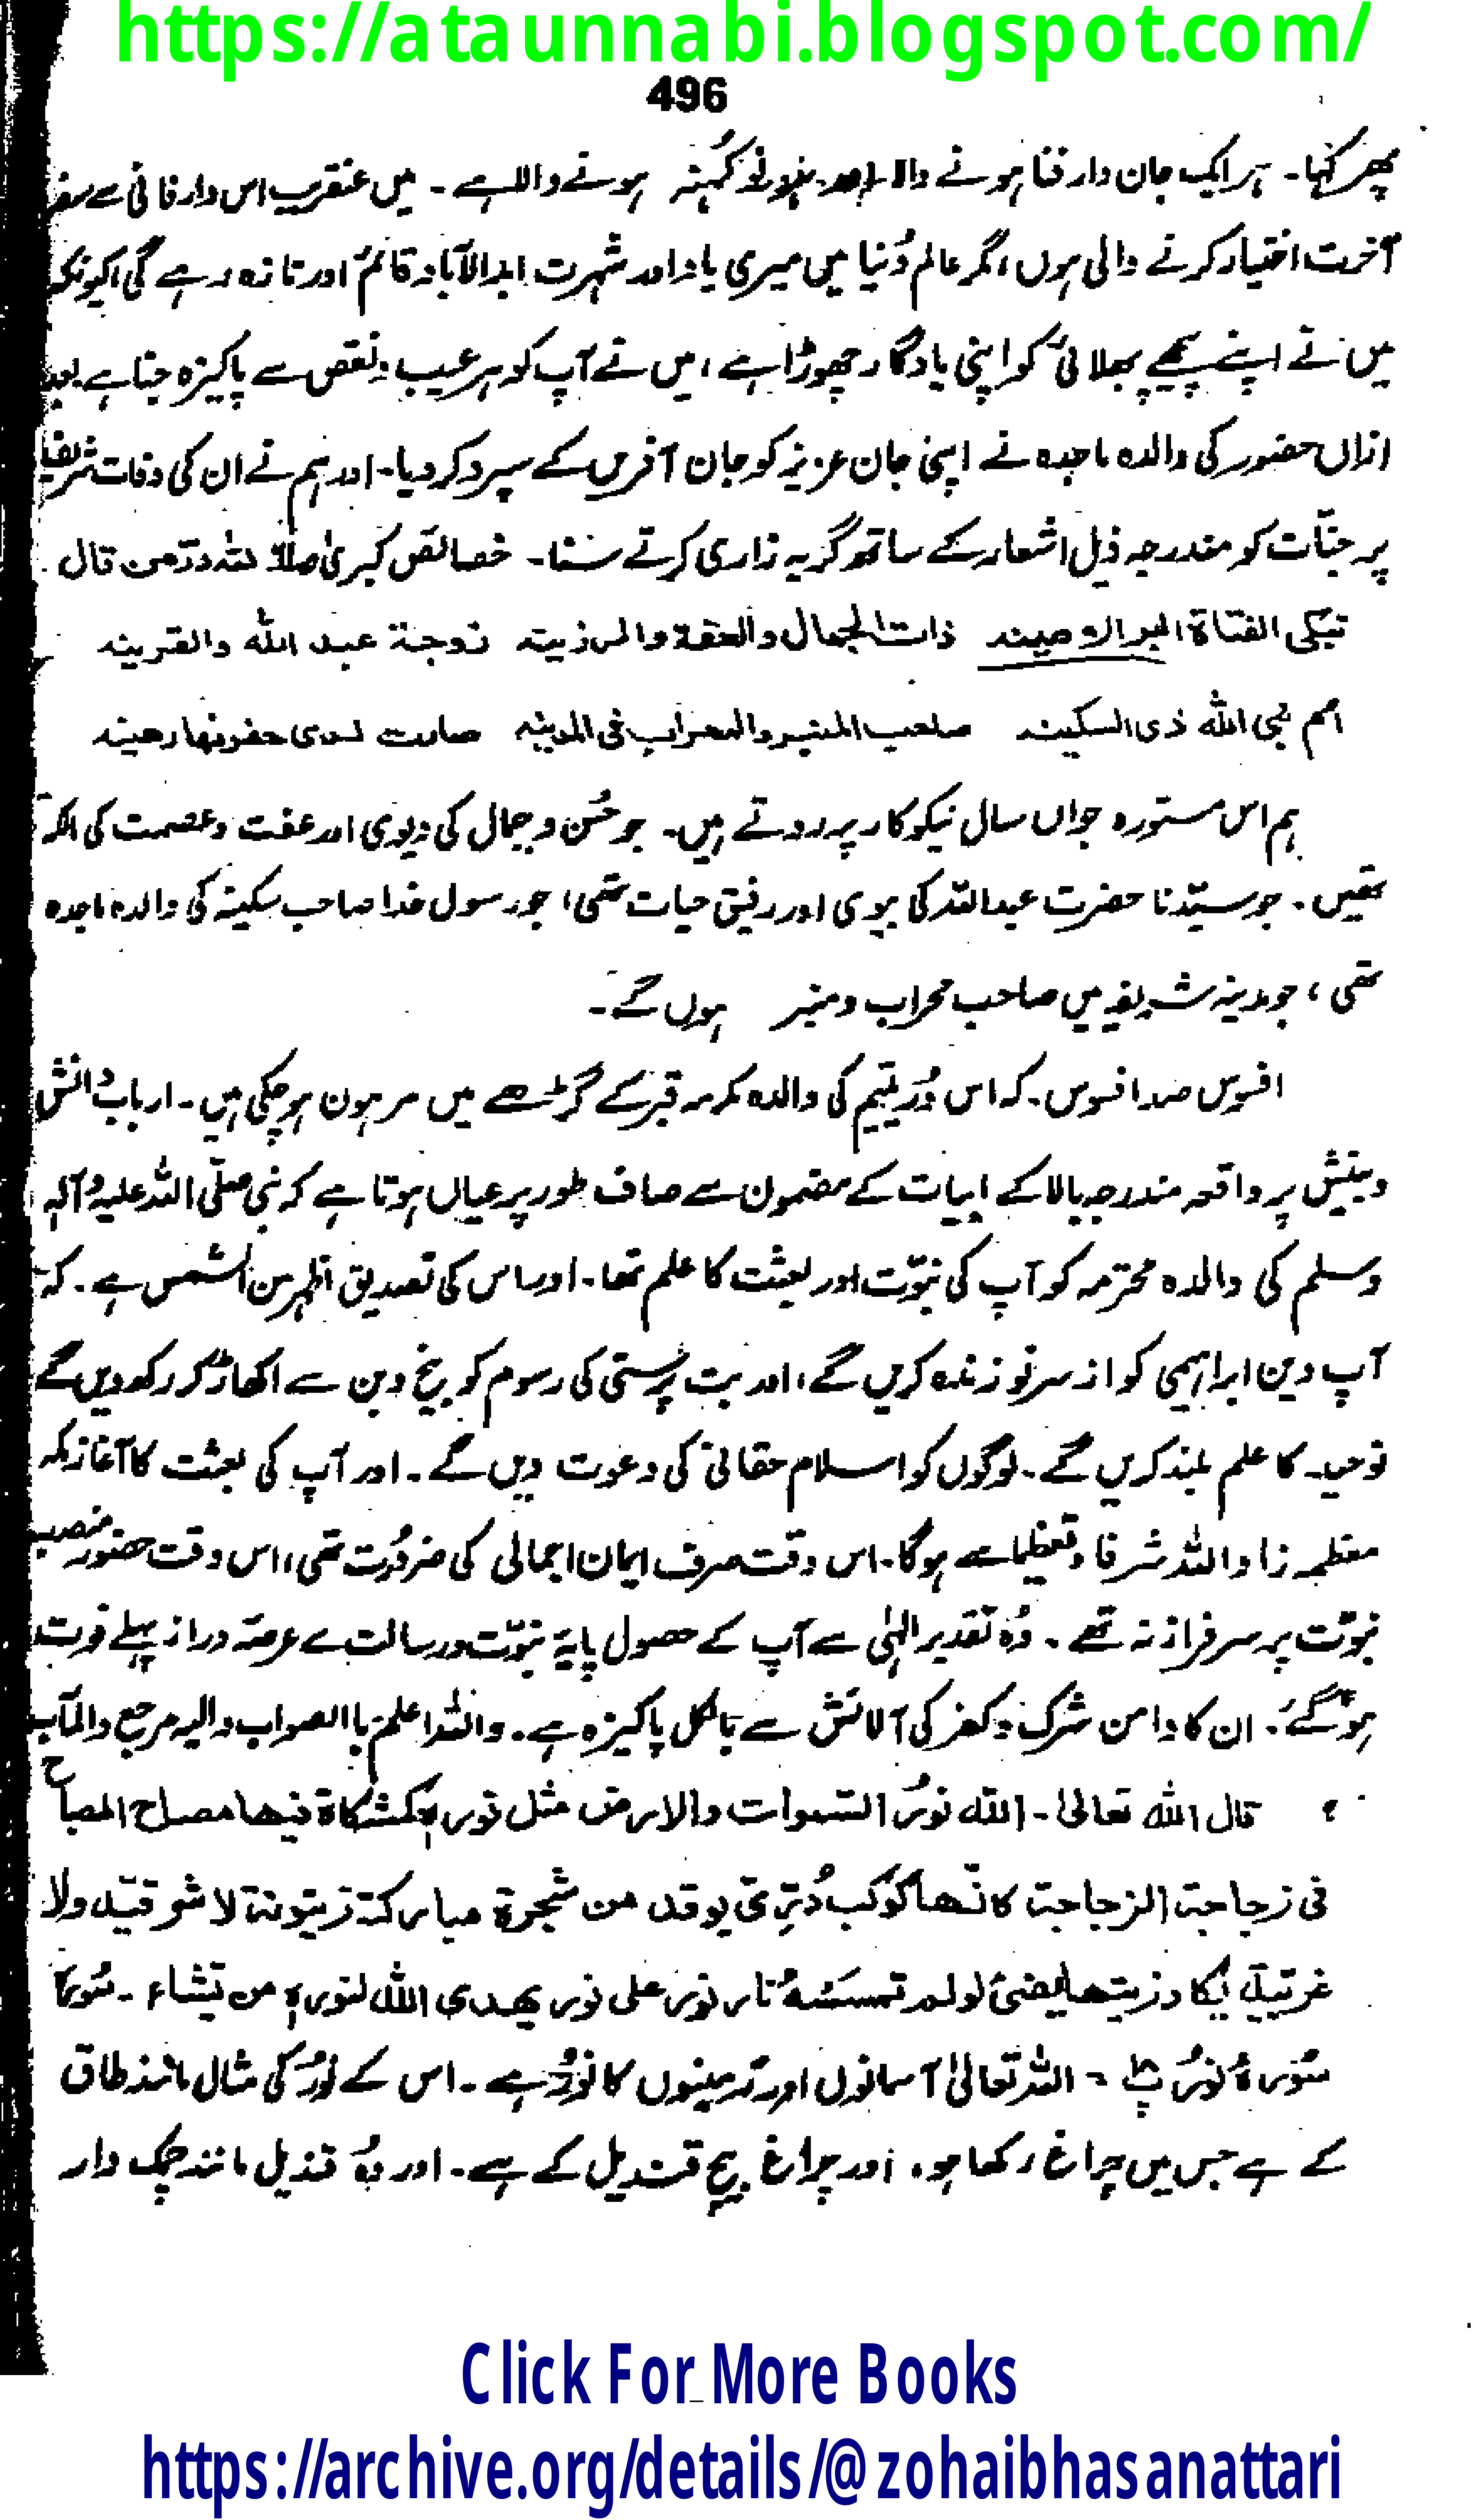 https://ataunnabi.blogspot.com/
496
پھر کہا۔ ہر ایک جان دار فنا ہونے والا اور ہر نو کہنہ ہونے والا ہے ۔ میں عنقریب اس دار فانی سے سفر
آخرت اختیار کرنے والی ہوں، مگر عالم دُنیا میں میری یاد اور شہرت ابدالآباد قائم اور تازہ رہے گی، کیونکہ
میں نے اپنے پیچھے بھلائی کو اپنی یادگار چھوڑا ہے ، میں نے آپ کو ہر عیب و نقص سے پاکیزہ جنا ہے بعد
ازاں حضور کی والدہ ماجدہ نے اپنی جان عزیز کو جان آفریں کے سپرد کر دیا۔ اور ہم نے ان کی وفات شریف
پر جنّات کو مندرجہ ذیل اشعار کے ساتھ گریہ زاری کرتے سنا۔ خصائص کبریٰ للہ درّ من قال
تبکی الفتاة البر الامینہ ذات الجمال والعفة والرزینہ زوجة عبد اللہ والقرینہ
ام نبی اللہ ذی السکینہ صاحب المنبر والمحراب فی المدینہ صارت لدی حفرتھا رھینہ
ہم اس مستورہ جواں سال نیکو کار پر روتے ہیں۔ جو حُسن و جمال کی دیوی اور عفت و عصمت کی ملکہ
تھیں ۔ جو سیّدنا حضرت عبداللہ کی بیوی اور رفیق حیات تھی، جو رسول خدا صاحب سکینہ کی والدہ ماجدہ
تھی ، جو مدینہ شریف میں صاحب محراب و منبر ہوں گے ۔
افسوس صد افسوس ۔ کہ اس دُرِّ یتیم کی والدہ مکرمہ قبر کے گڑھے میں مرہون ہو چکی ہیں ۔ ارباب دانش
و بینش پر واقعہ مندرجہ بالا کے ابیات کے مضمون سے صاف طور پر عیاں ہوتا ہے کہ نبی صلّی اللہ علیہ و آلہٖ
وسلم کی والدہ محترمہ کو آپ کی نبوّت اور بعثت کا علم تھا ۔ اور اس کی تصدیق اظہر من الشمس ہے ۔ کہ
آپ دین ابراہیمی کو از سر نو زندہ کریں گے ، اور بت پرستی کی رسوم کو بیخ و بن سے اکھاڑ کر رکھ دیں گے
توحید کا علم بلند کریں گے ۔ لوگوں کو اسلام حقانی کی دعوت دیں گے ۔ اور آپ کی بعثت کا آغاز مکہ
معظمہ زاد اللہ شرفا و تعظیما سے ہوگا ۔ اس وقت صرف ایمان اجمالی کی ضرورت تھی ، اس وقت حضور منصب
نبوّت پر سرفراز نہ تھے ۔ وُہ تقدیر الٰہی سے آپ کے حصول پایۂ نبوّت و رسالت سے عرصہ دراز پہلے فوت
ہو گئے ۔ ان کا دامن شرک و کفر کی آلائش سے بالکل پاکیزہ ہے ۔ واللہ اعلم باالصواب والیہ مرجع والمآب
؛ قال اللہ تعالیٰ ۔ اللہ نورُ السّموات والارض مثل نورہٖ کمشکاة فیھا مصباح المصباح
فی زجاجة الزجاجة کانّھا کوکب دُرّیّ یوقد من شجرة مبارکة زیتونة لا شرقیّة ولا
غربیّة یکاد زیتھا یضیٔ لو لم تمسسہُ نار نور علی نور یھدی اللہ لنورہٖ من یشاء ۔
سُورۂ نور پ ۔ اللہ تعالیٰ آسمانوں اور زمینوں کا نُور ہے ۔ اس کے نُور کی مثال مانند طاق
کے ہے جس میں چراغ رکھا ہو ۔ اور چراغ بیچ قندیل کے ہے ۔ اور وُہ قندیل مانند چمک دار
Click For More Books
https://archive.org/details/@zohaibhasanattari